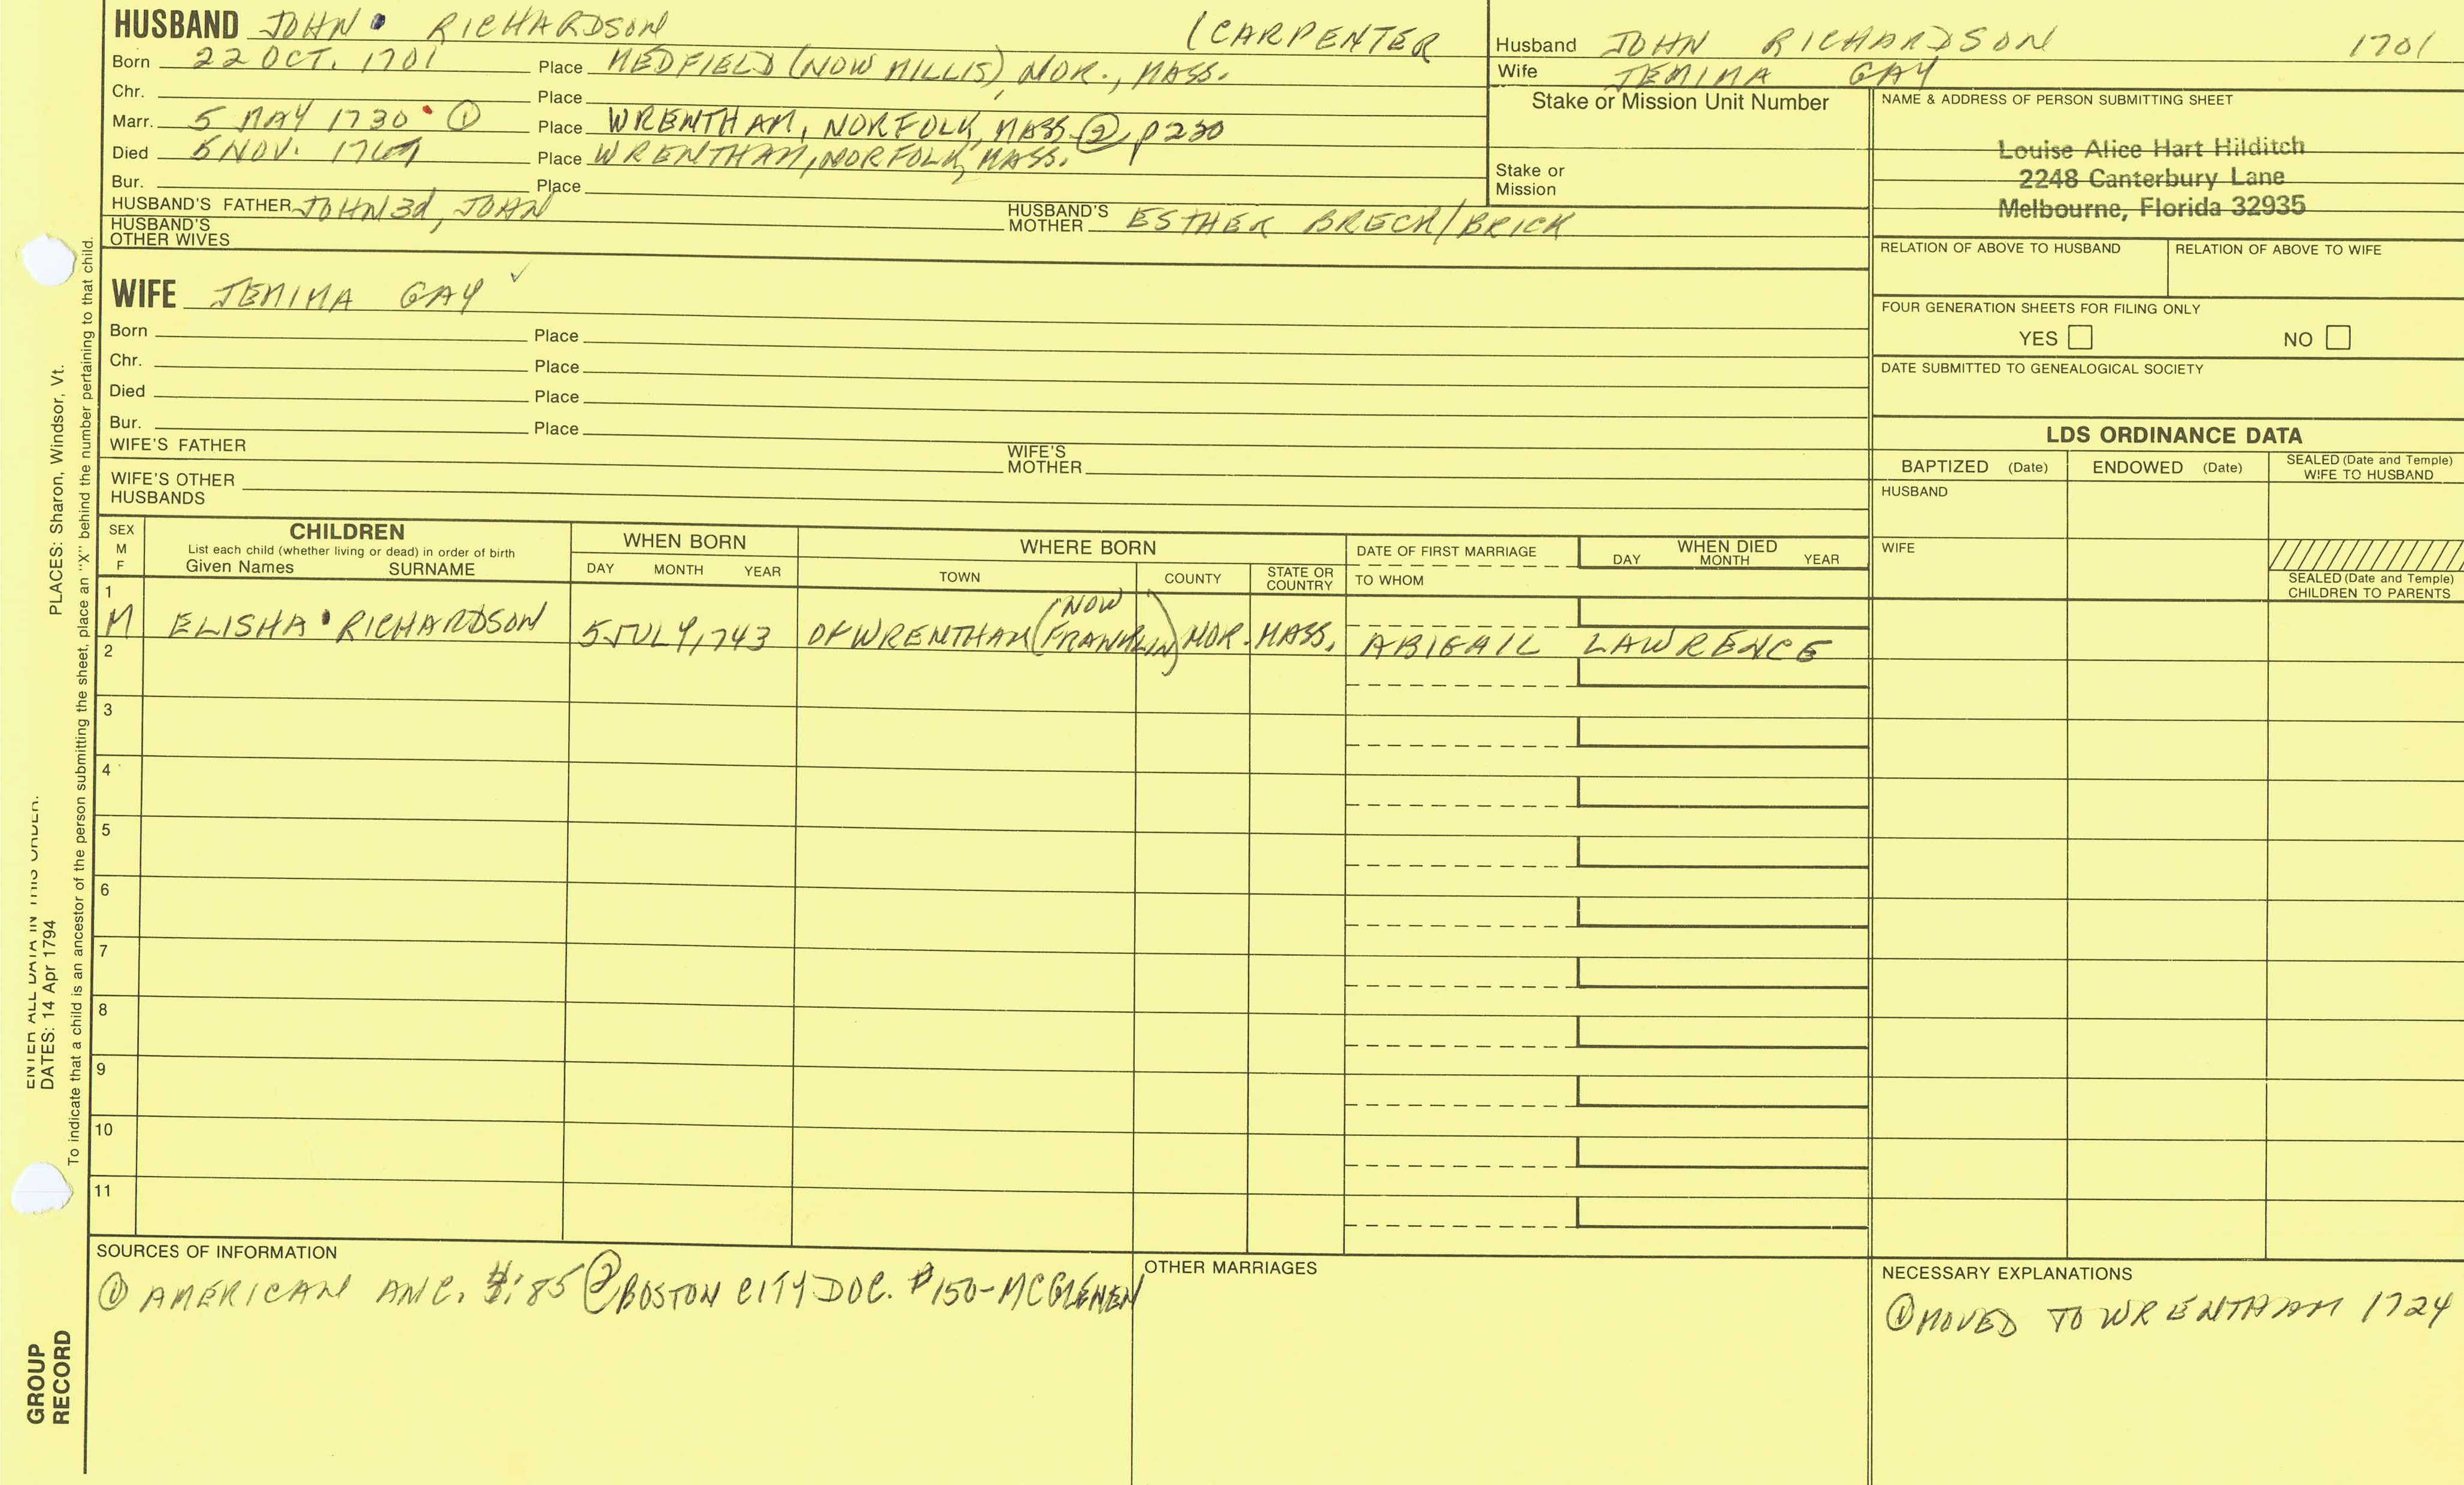 HUSBAND JOHN RICHARDSON (CARPENTER
Born 22 OCT. 1701 Place MEDFIELD (NOW MILLIS), NOR., MASS.
Chr. Place
Marr. 5 MAY 1730 ① Place WRENTHAM, NORFOLK, MASS ② p230
Died 5 NOV. Place WRENTHAM, NORFOLK, MASS.
Bur. Place
HUSBAND'S FATHER JOHN 3d, JOHN HUSBAND'S MOTHER ESTHER BRECK/BRICK
HUSBAND'S OTHER WIVES
Husband JOHN RICHARDSON 1701
Wife JEMIMA GAY
Stake or Mission Unit Number
Stake or Mission
NAME & ADDRESS OF PERSON SUBMITTING SHEET
Louise Alice Hart Hilditch
2248 Canterbury Lane
Melbourne, Florida 32935
RELATION OF ABOVE TO HUSBAND RELATION OF ABOVE TO WIFE
FOUR GENERATION SHEETS FOR FILING ONLY
YES NO
DATE SUBMITTED TO GENEALOGICAL SOCIETY
WIFE JEMIMA GAY ✓
Born Place
Chr. Place
Died Place
Bur. Place
WIFE'S FATHER WIFE'S MOTHER
WIFE'S OTHER HUSBANDS
LDS ORDINANCE DATA
BAPTIZED (Date) ENDOWED (Date) SEALED (Date and Temple) WIFE TO HUSBAND
HUSBAND
WIFE
SEALED (Date and Temple) CHILDREN TO PARENTS
SEX M F
CHILDREN
List each child (whether living or dead) in order of birth
Given Names SURNAME
WHEN BORN
DAY MONTH YEAR
WHERE BORN
TOWN COUNTY STATE OR COUNTRY
DATE OF FIRST MARRIAGE
TO WHOM
WHEN DIED
DAY MONTH YEAR
1
M ELISHA RICHARDSON 5 JULY, 1743 OF WRENTHAM (NOW FRANKLIN) NOR. MASS. ABIGAIL LAWRENCE
2
3
4
5
6
7
8
9
10
11
SOURCES OF INFORMATION
① AMERICAN ANC. :85 ② BOSTON CITY DOC. #150-MCGLENEN
OTHER MARRIAGES
NECESSARY EXPLANATIONS
① MOVED TO WRENTHAM 1724
PLACES: Sharon, Windsor, Vt.
ENTER ALL DATA IN THIS ORDER.
DATES: 14 Apr 1794
To indicate that a child is an ancestor of the person submitting the sheet, place an "X" behind the number pertaining to that child.
GROUP
RECORD